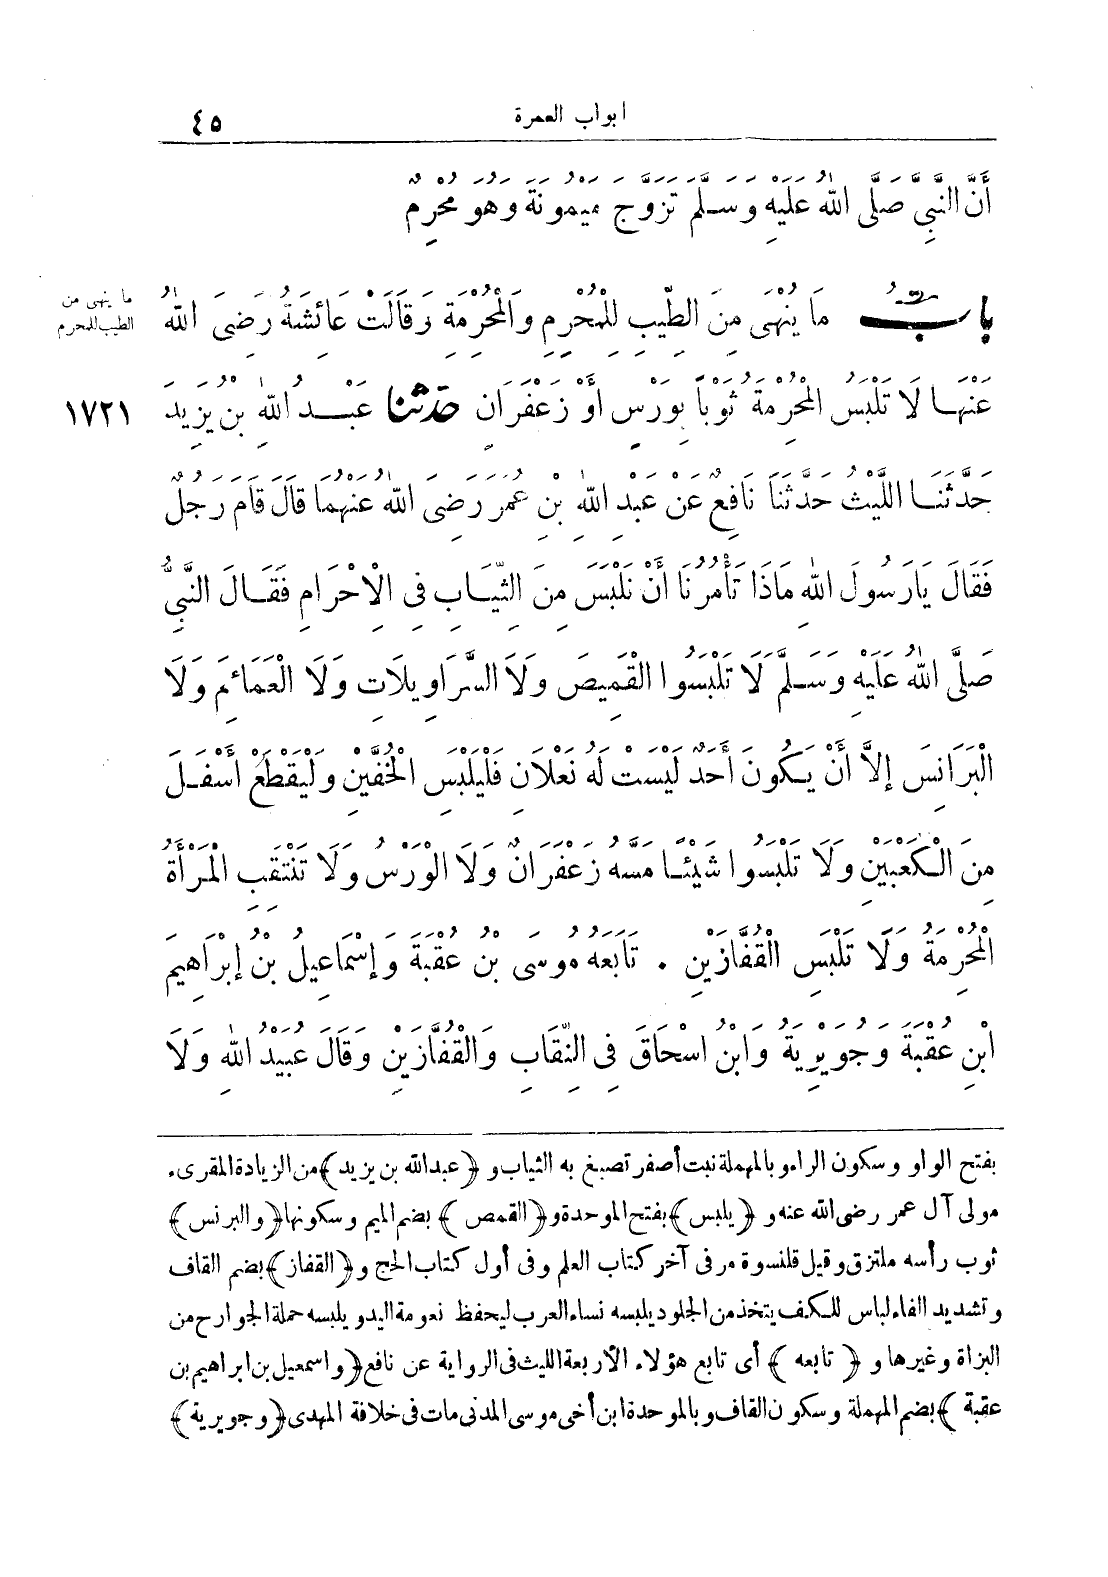 ابواب العمرة
٤٥
أَنَّ النَّبِيَّ صَلَّى اللهُ عَلَيْهِ وَسَلَّمَ تَزَوَّجَ مَيْمُونَةَ وَهُوَ مُحْرِمٌ
بابٌ مَا يُنْهَى مِنَ الطِّيبِ لِلْمُحْرِمِ وَالْمُحْرِمَةِ وَقَالَتْ عَائِشَةُ رَضِيَ اللهُ
ما ينهى من
الطيب للمحرم
عَنْهَا لَا تَلْبَسِ الْمُحْرِمَةُ ثَوْبًا بِوَرْسٍ أَوْ زَعْفَرَانٍ حَدَّثَنَا عَبْدُ اللهِ بْنُ يَزِيدَ
١٧٢١
حَدَّثَنَا اللَّيْثُ حَدَّثَنَا نَافِعٌ عَنْ عَبْدِ اللهِ بْنِ عُمَرَ رَضِيَ اللهُ عَنْهُمَا قَالَ قَامَ رَجُلٌ
فَقَالَ يَارَسُولَ اللهِ مَاذَا تَأْمُرُنَا أَنْ نَلْبَسَ مِنَ الثِّيَابِ فِي الْإِحْرَامِ فَقَالَ النَّبِيُّ
صَلَّى اللهُ عَلَيْهِ وَسَلَّمَ لَا تَلْبَسُوا الْقَمِيصَ وَلَا السَّرَاوِيلَاتِ وَلَا الْعَمَائِمَ وَلَا
الْبَرَانِسَ إِلَّا أَنْ يَكُونَ أَحَدٌ لَيْسَتْ لَهُ نَعْلَانِ فَلْيَلْبَسِ الْخُفَّيْنِ وَلْيَقْطَعْ أَسْفَلَ
مِنَ الْكَعْبَيْنِ وَلَا تَلْبَسُوا شَيْئًا مَسَّهُ زَعْفَرَانٌ وَلَا الْوَرْسُ وَلَا تَنْتَقِبِ الْمَرْأَةُ
الْمُحْرِمَةُ وَلَا تَلْبَسِ الْقُفَّازَيْنِ . تَابَعَهُ مُوسَى بْنُ عُقْبَةَ وَإِسْمَاعِيلُ بْنُ إِبْرَاهِيمَ
ابْنِ عُقْبَةَ وَجُوَيْرِيَةُ وَابْنُ اسْحَاقَ فِي النِّقَابِ وَالْقُفَّازَيْنِ وَقَالَ عُبَيْدُ اللهِ وَلَا
بفتح الواو وسكون الراء وبالمهملة نبت أصفر تصبغ به الثياب و ﴿عبدالله بن يزيد﴾ من الزيادة المقرىء
مولى آل عمر رضى الله عنه و ﴿يلبس﴾ بفتح الموحدة و ﴿القمص﴾ بضم الميم وسكونها ﴿والبرنس﴾
ثوب رأسه ملتزق وقيل قلنسوة مر فى آخر كتاب العلم وفى أول كتاب الحج و ﴿القفاز﴾ بضم القاف
وتشديد الفاء لباس للكف يتخذ من الجلود يلبسه نساء العرب ليحفظ نعومة اليد ويلبسه حملة الجوارح من
البزاة وغيرها و ﴿تابعه﴾ أى تابع هؤلاء الأربعة الليث فى الرواية عن نافع ﴿واسمعيل بن ابراهيم بن
عقبة﴾ بضم المهملة وسكون القاف وبالموحدة ابن أخى موسى المدنى مات فى خلافة المهدى ﴿وجويرية﴾